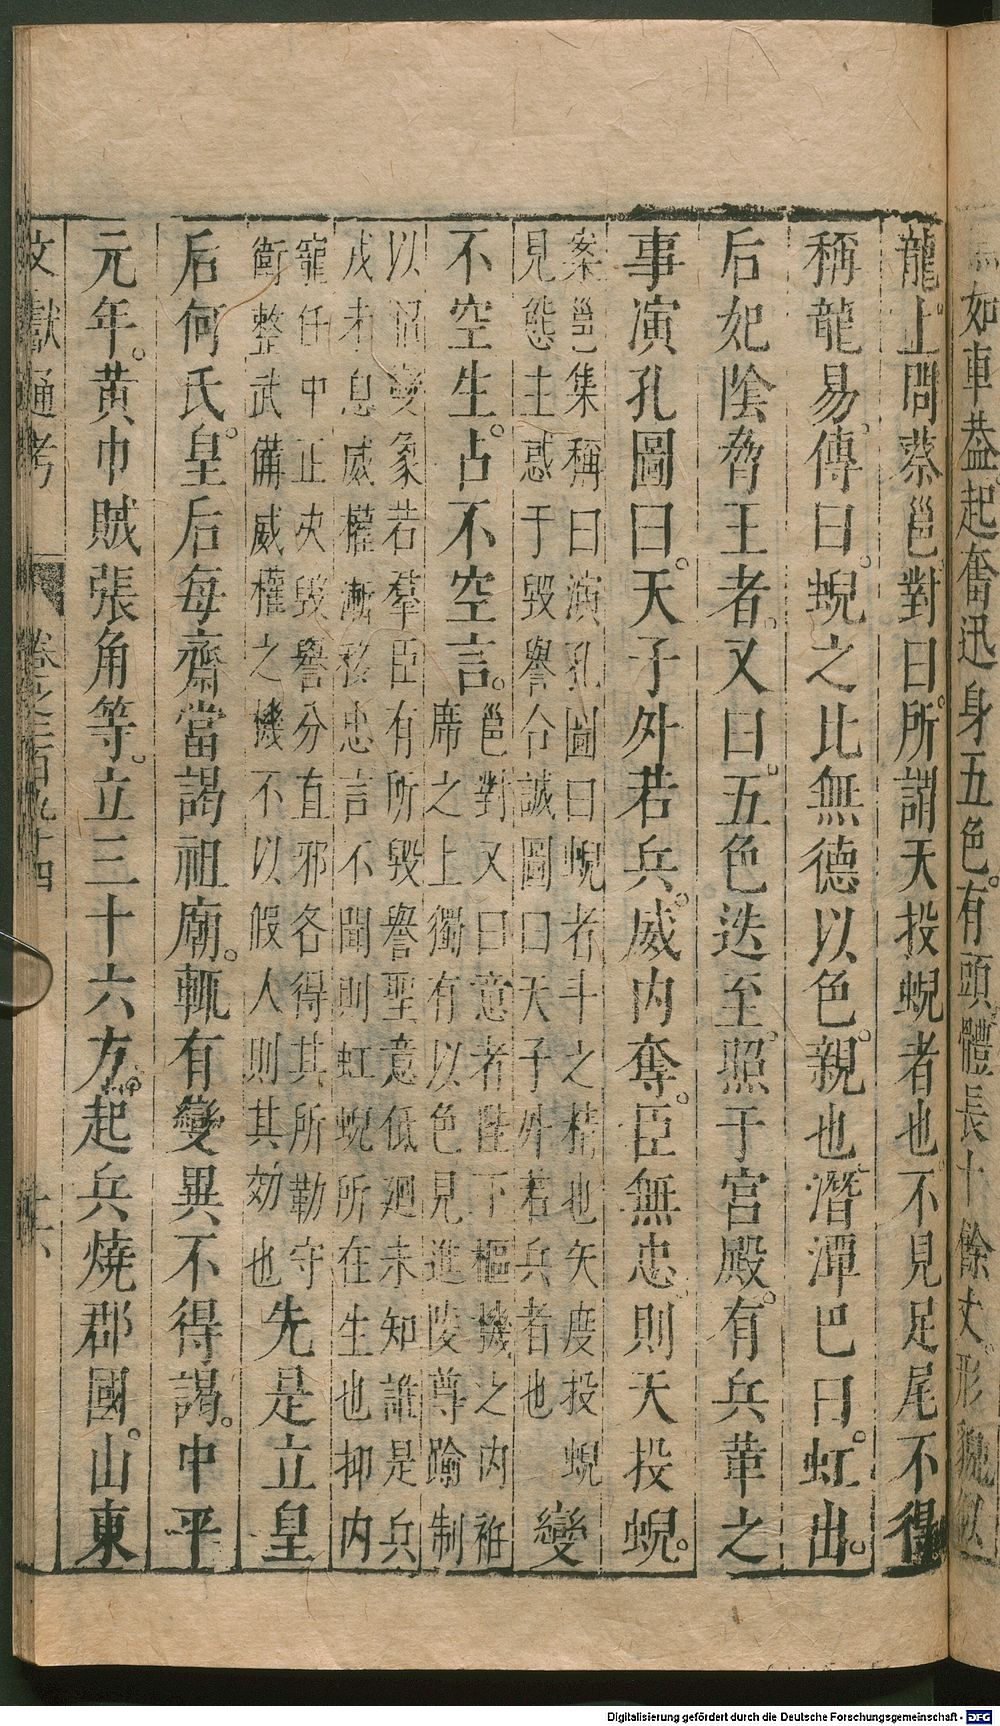 如車葢起奮迅身五色。有頭體長十餘丈形貌似
龍。上問蔡邕對曰。所謂天投蜺者也不見足尾不得
稱龍易傳曰。蜺之比無德以色。親也潛潭巴曰。虹出。
后妃陰脅王者。又曰五色迭至。照于宮殿。有兵革之
事演孔圖曰。天子外若兵。威內奪。臣無忠則天投蜺。
案邕集稱曰演孔圖曰蜺者斗之精也矢度投蜺
見態主惑于毀譽合誠圖曰天子外若兵者也
變
不空生占不空言。
邕對又曰意者陛下樞機之內袵
席之上獨有以色見進陵尊踰制
以招變象若羣臣有所毀譽聖意低迴未知誰是兵
戎未息威權漸移忠言不聞則虹蜺所在生也抑內
寵任中正決毀譽分直邪各得其所勒守
衛整武備威權之機不以假人則其効也
先是立皇
后何氏皇。后每齋當謁祖廟。輒有變異不得謁。中平
元年。黃巾賊張角等。立三十六方起兵燒郡國。山東
文獻通考 卷之三百九十四 十六
Digitalisierung gefördert durch die Deutsche Forschungsgemeinschaft - DFG